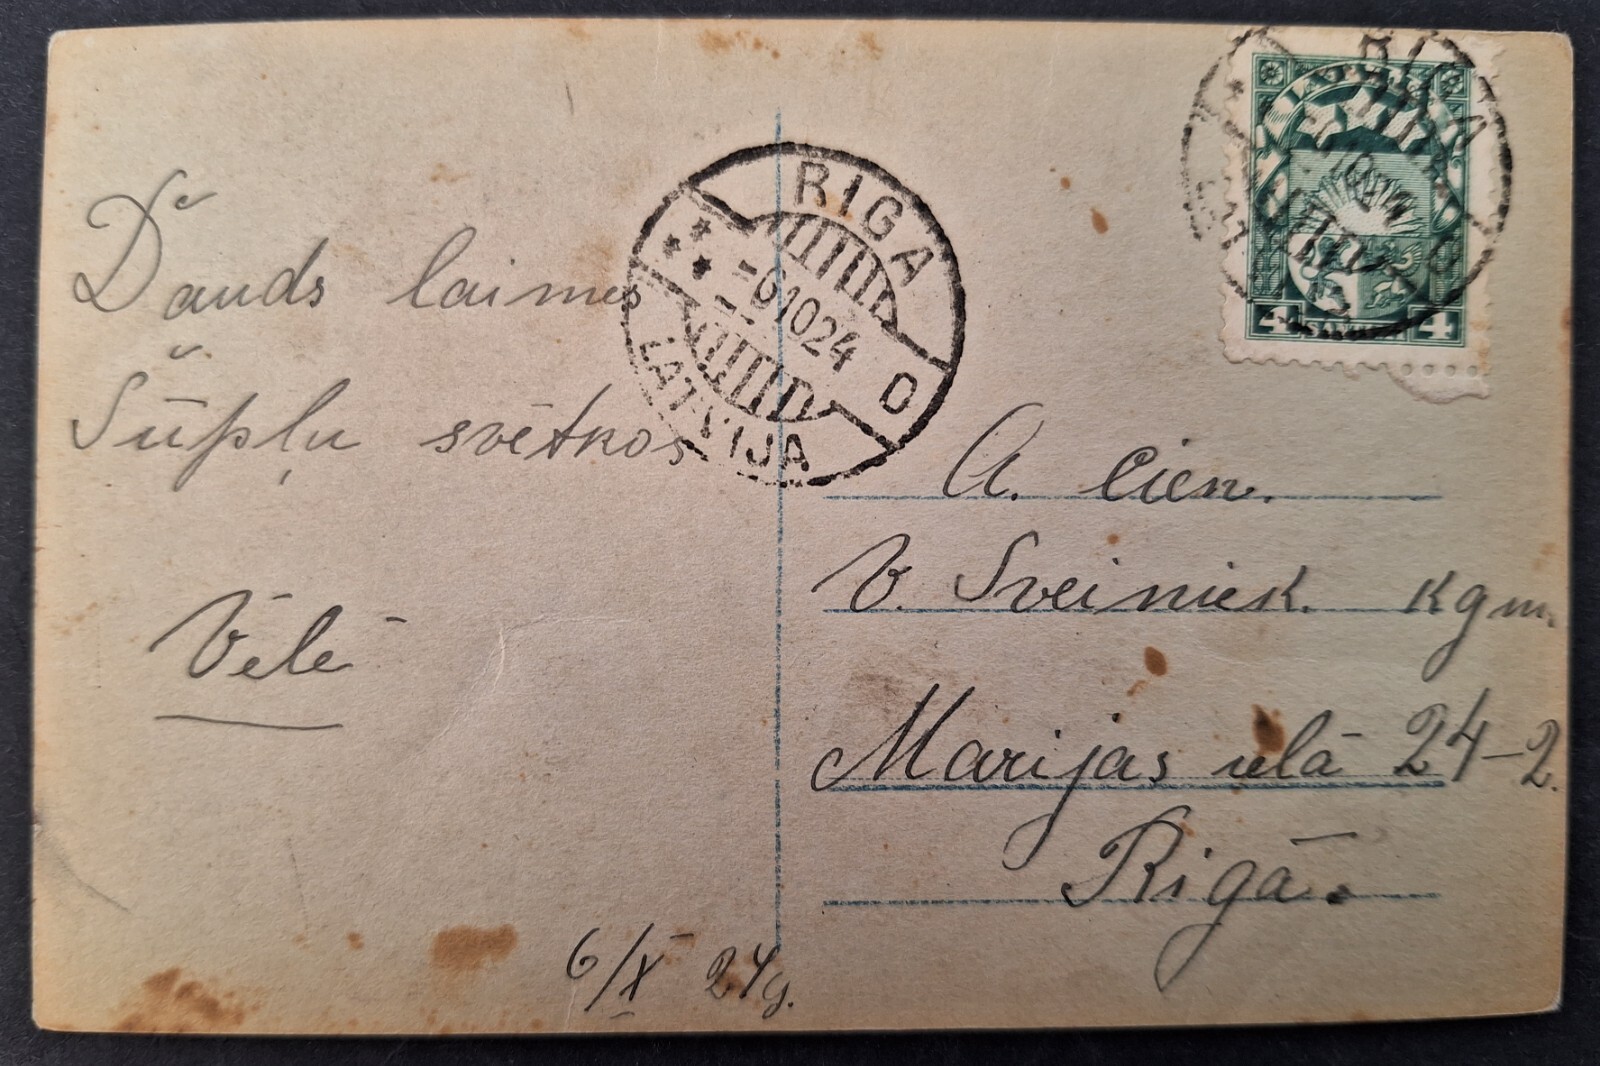 Daudz laimes
Šūpļu svētkos
Vēlē
6/X 24g.
RIGA
-6 10 24
D
LATVIJA
LATVIJA
4 4
A. cien.
V. Sveiniek. kgm.
Marijas ielā 24-2.
Rīgā.